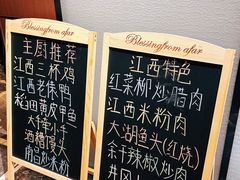 Blessingfrom afar
主厨推荐
江西三杯鸡
江西老俵鸭
稻田黄皮甲鱼
大伞小千
酒糟馒头
南昌炒米粉
Blessingfrom afar
江西特色
红菜柳炒腊肉
江西米粉肉
大湖鱼头(红烧)
余干辣椒炒肉